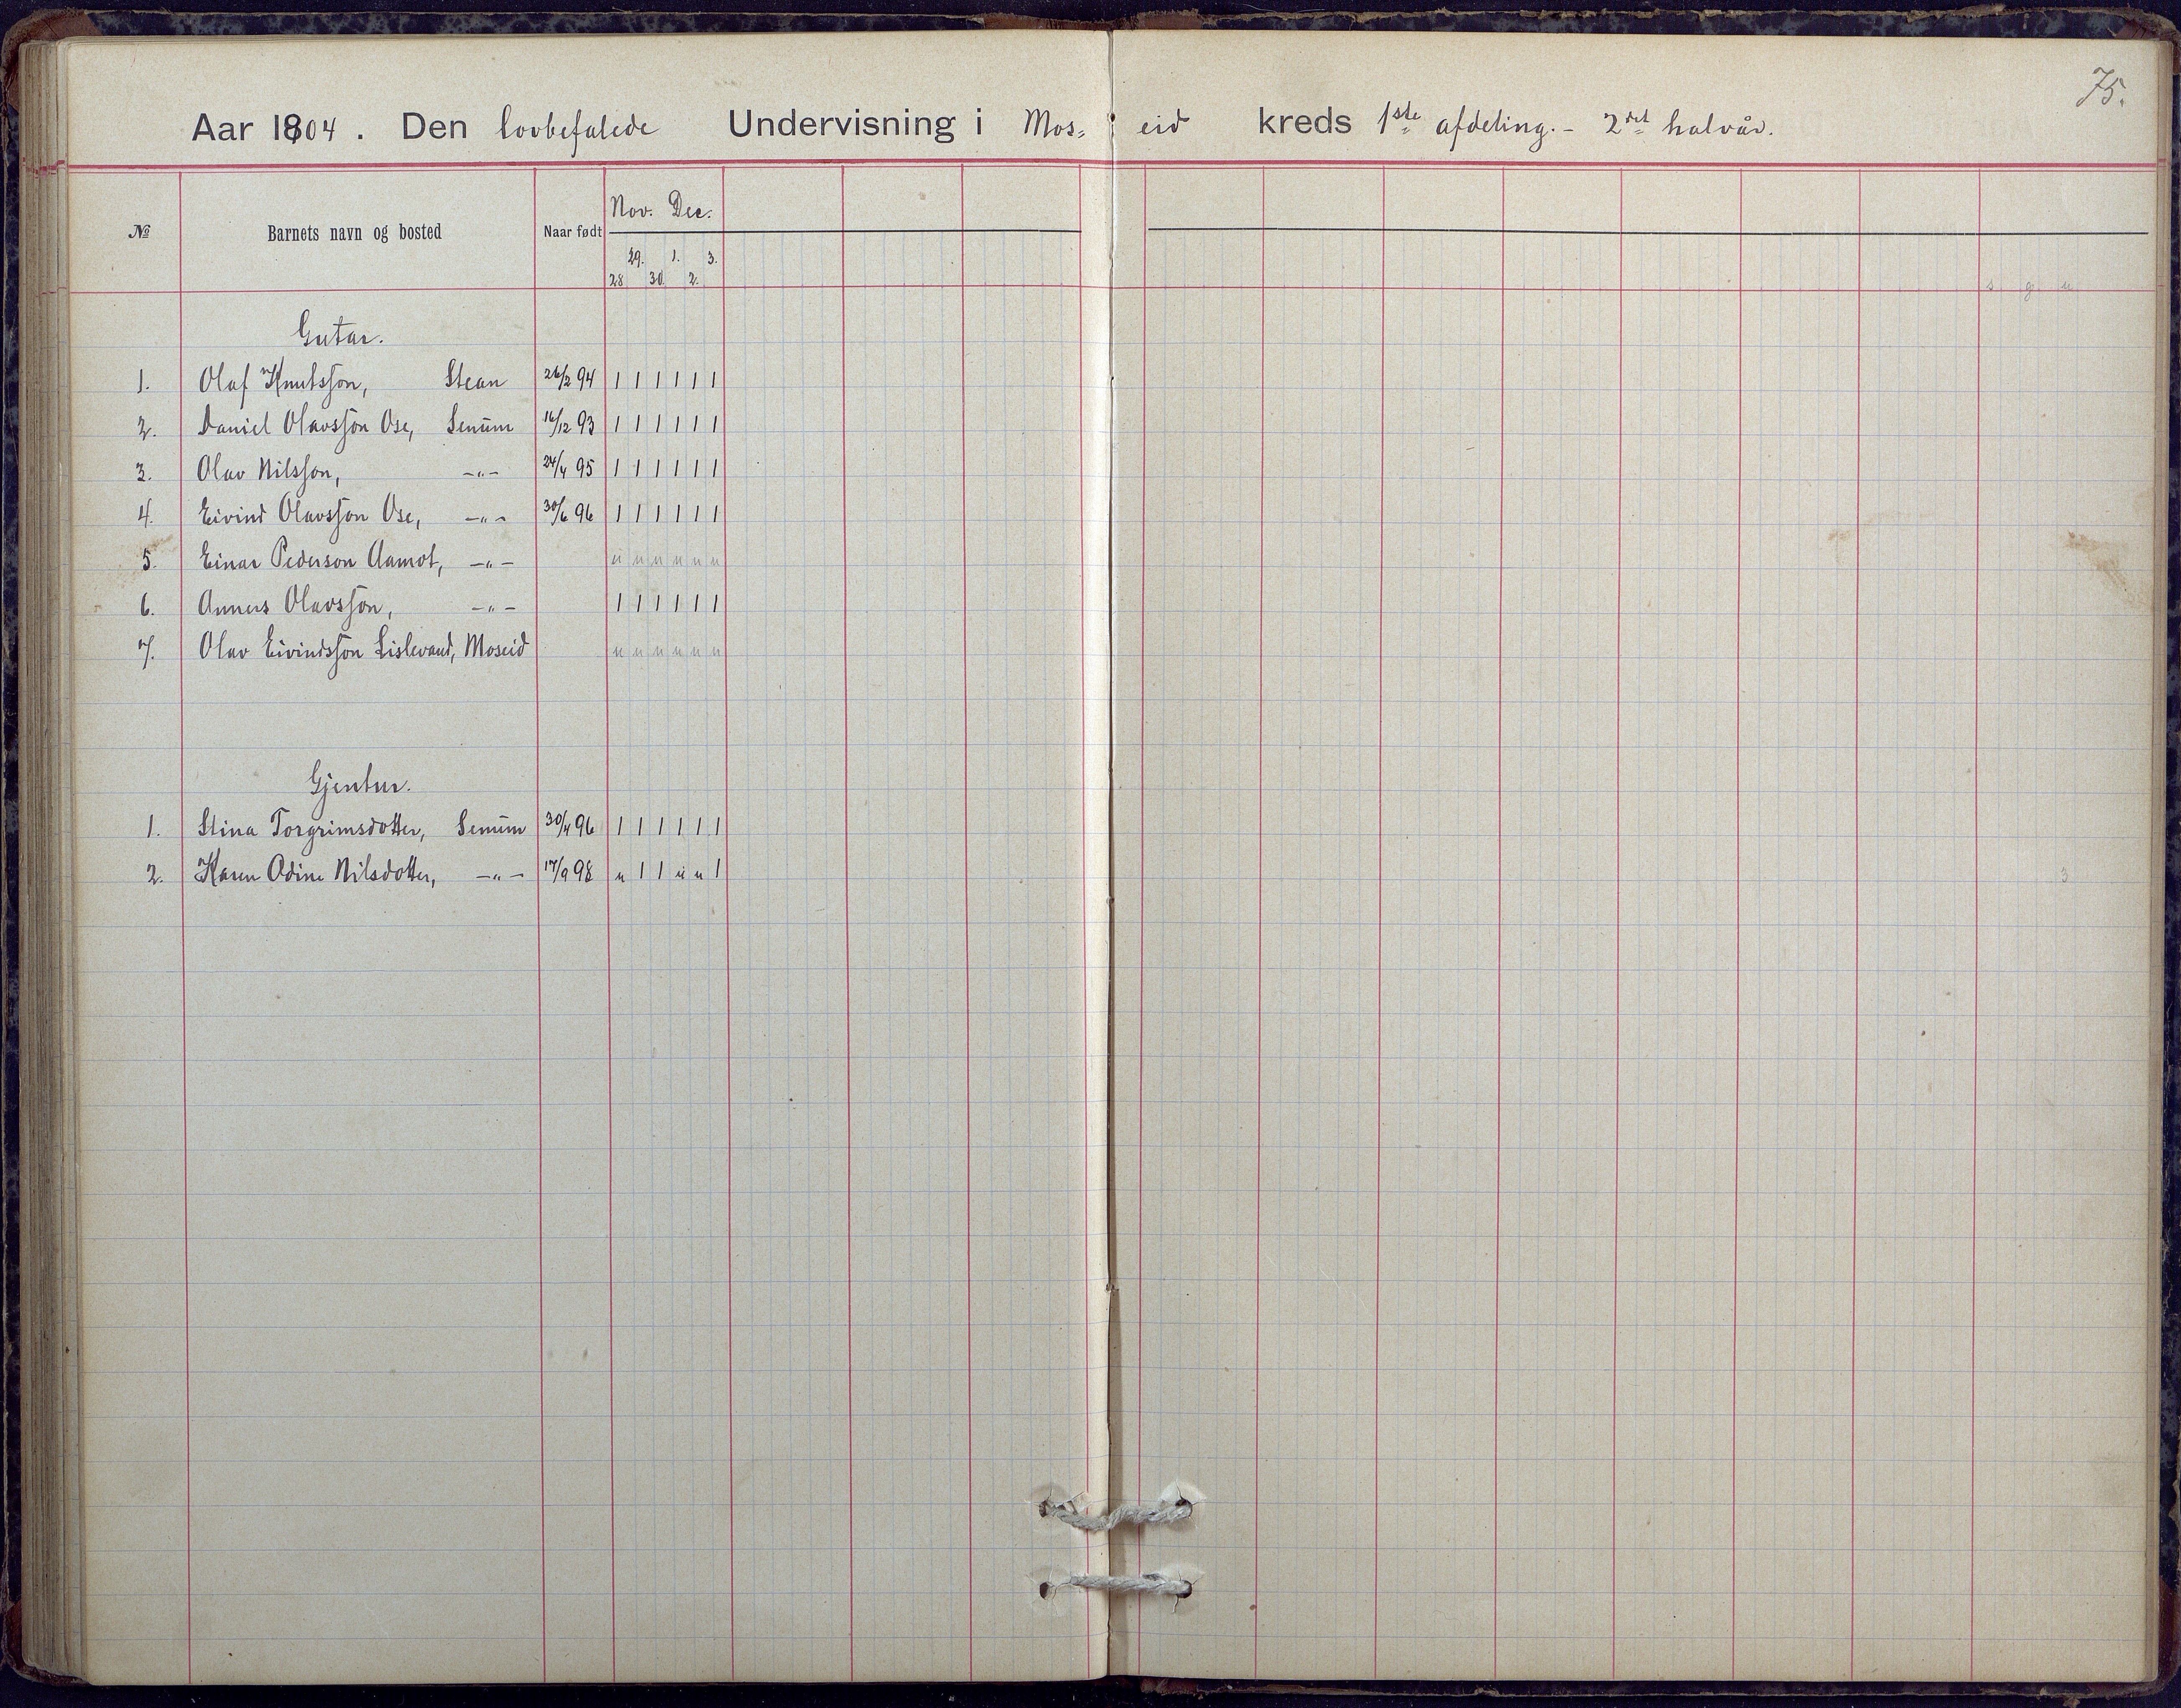 75.
Aar 1904. Den lovbefalede Undervisning i Mos= eid kreds 1ste afdeling. - 2det halvår.
№ Barnets navn og bosted Naar født Nov. Dec.
29. 1. 3.
28 30. 2. s g u
Gutar.
1. Olaf Knutsson, Stean 26/2 94 1 1 1 1 1 1
2. Daniel Olavsson Ose, Senum 16/12 93 1 1 1 1 1 1
3. Olav Nilsson, -"- 24/4 95 1 1 1 1 1 1
4. Eivind Olavsson Ose, -"- 30/6 96 1 1 1 1 1 1
5. Einar Pederson Aamot, -"- u u u u u u
6. Anners Olavsson, -"- 1 1 1 1 1 1
7. Olav Eivindsson Lislevand, Moseid u u u u u u
Gjentur.
1. Stina Torgrimsdotter, Senum 30/4 96 1 1 1 1 1 1
2. Karen Odine Nilsdotter, -"- 17/9 98 u 1 1 u u 1 3